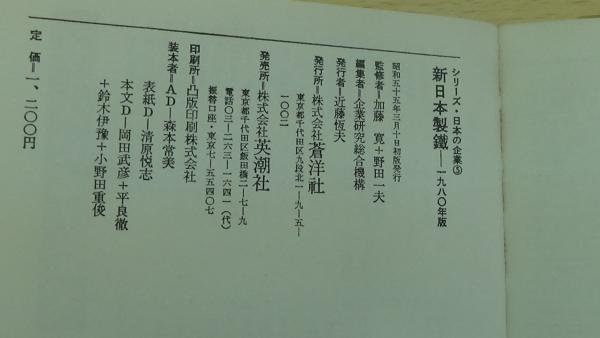 シリーズ・日本の企業⑤
新日本製鐵――一九八〇年版
昭和五十五年三月十日初版発行
監修者＝加藤 寛＋野田一夫
編集者＝企業研究総合機構
発行者＝近藤恆夫
発行所＝株式会社蒼洋社
東京都千代田区九段北一―九―五―
一〇〇二
発売所＝株式会社英潮社
東京都千代田区飯田橋二―七―九
電話〇三―二六三―一六四一（代）
振替口座・東京七―五五四〇七
印刷所＝凸版印刷株式会社
装本者＝ＡＤ―森本常美
表紙Ｄ―清原悦志
本文Ｄ―岡田武彦＋平良徹
＋鈴木伊豫＋小野田重俊
定 価＝一、二〇〇円